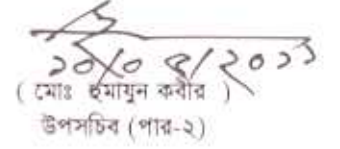 ১০/০৪/২০১১
( মোঃ হুমায়ুন কবীর )
উপসচিব (পার-২)